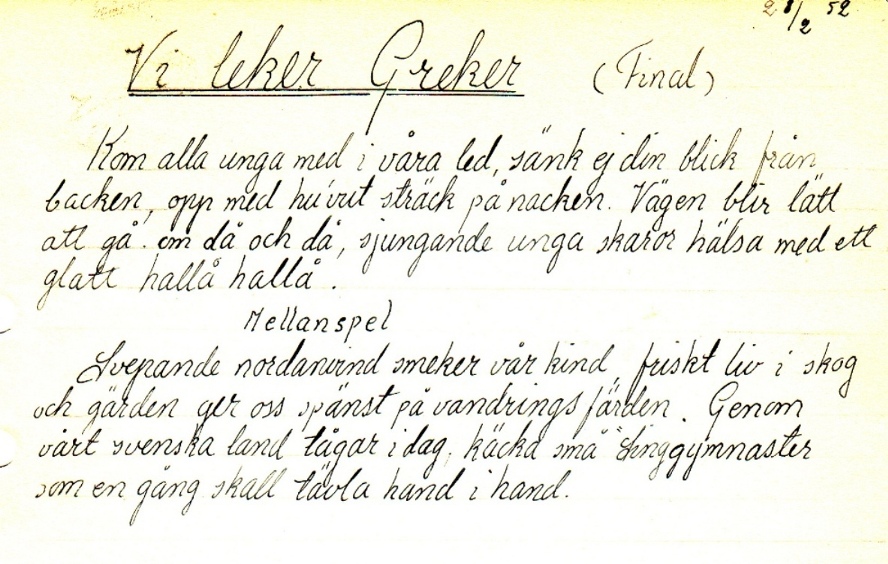 28/2 52
Vi leker Greker (Final)
Kom alla unga med i våra led, sänk ej din blick från
backen, opp med hu'vut sträck på nacken. Vägen blir lätt
att gå. om då och då, sjungande unga skaror hälsa med ett
glatt hallå hallå.
Mellanspel
Svepande nordanvind smeker vår kind, friskt liv i skog
och gärden ger oss spänst på vandringsfärden. Genom
vårt svenska land tågar i dag, käcka små Linggymnaster
som en gång skall tävla hand i hand.